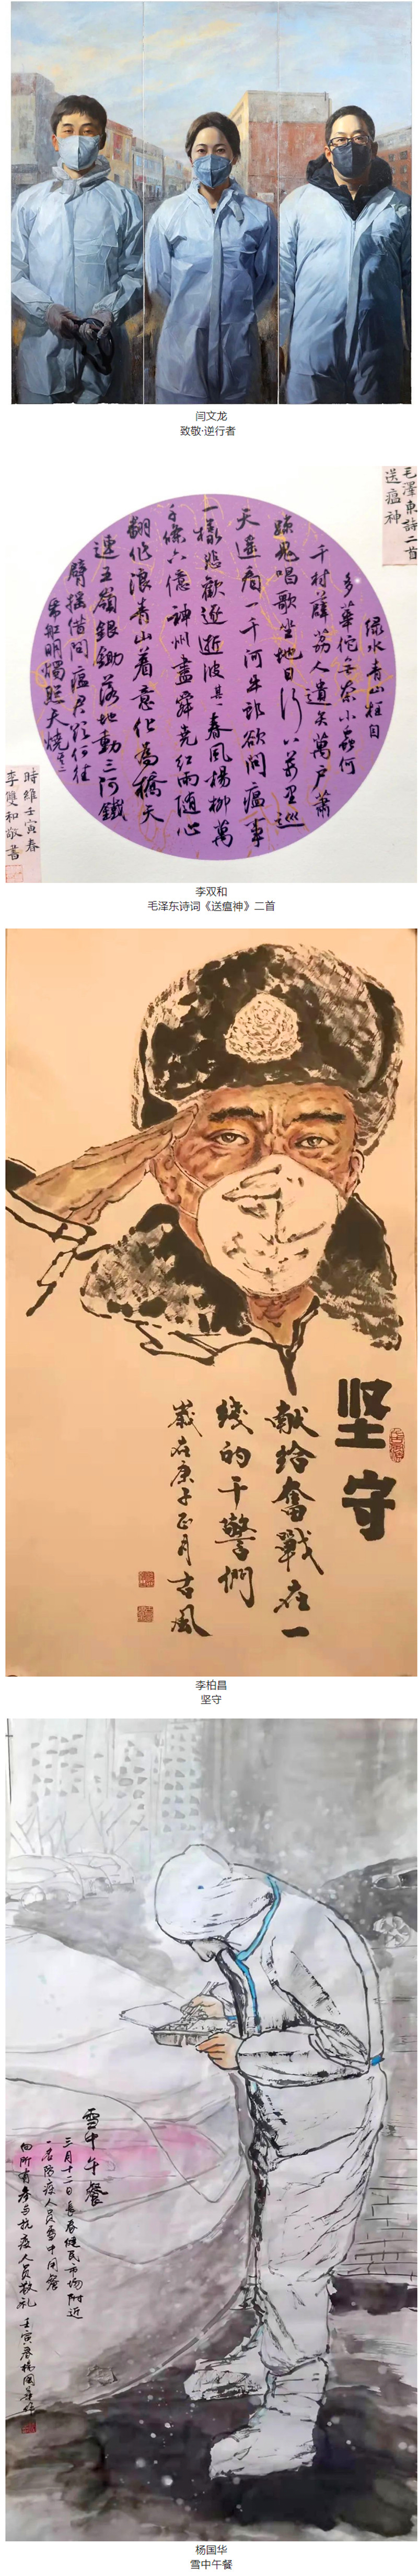 闫文龙
致敬·逆行者
毛澤東詩二首
送瘟神
綠水青山枉自
多華佗無奈小蟲何
千村薜荔人遺矢萬戶蕭
疏鬼唱歌坐地日行八萬里巡
天遙看一千河牛郎欲問瘟事
一樣悲歡逐逝波其一春風楊柳萬
千條六億神州盡舜堯紅雨隨心
翻作浪青山着意化為橋天
連五嶺銀鋤落地動三河鐵
臂搖借問瘟君欲何往
紙船明燭照天燒其二
時維壬寅春
李雙和敬書
李双和
毛泽东诗词《送瘟神》二首
坚守
献给奮戰在一
线的干警們
歲在庚子正月古風
李柏昌
坚守
雪中午餐
三月十二日長春健民市场附近
一名防疫人员雪中用餐
向所有参与抗疫人员敬礼 壬寅春楊國華作
杨国华
雪中午餐